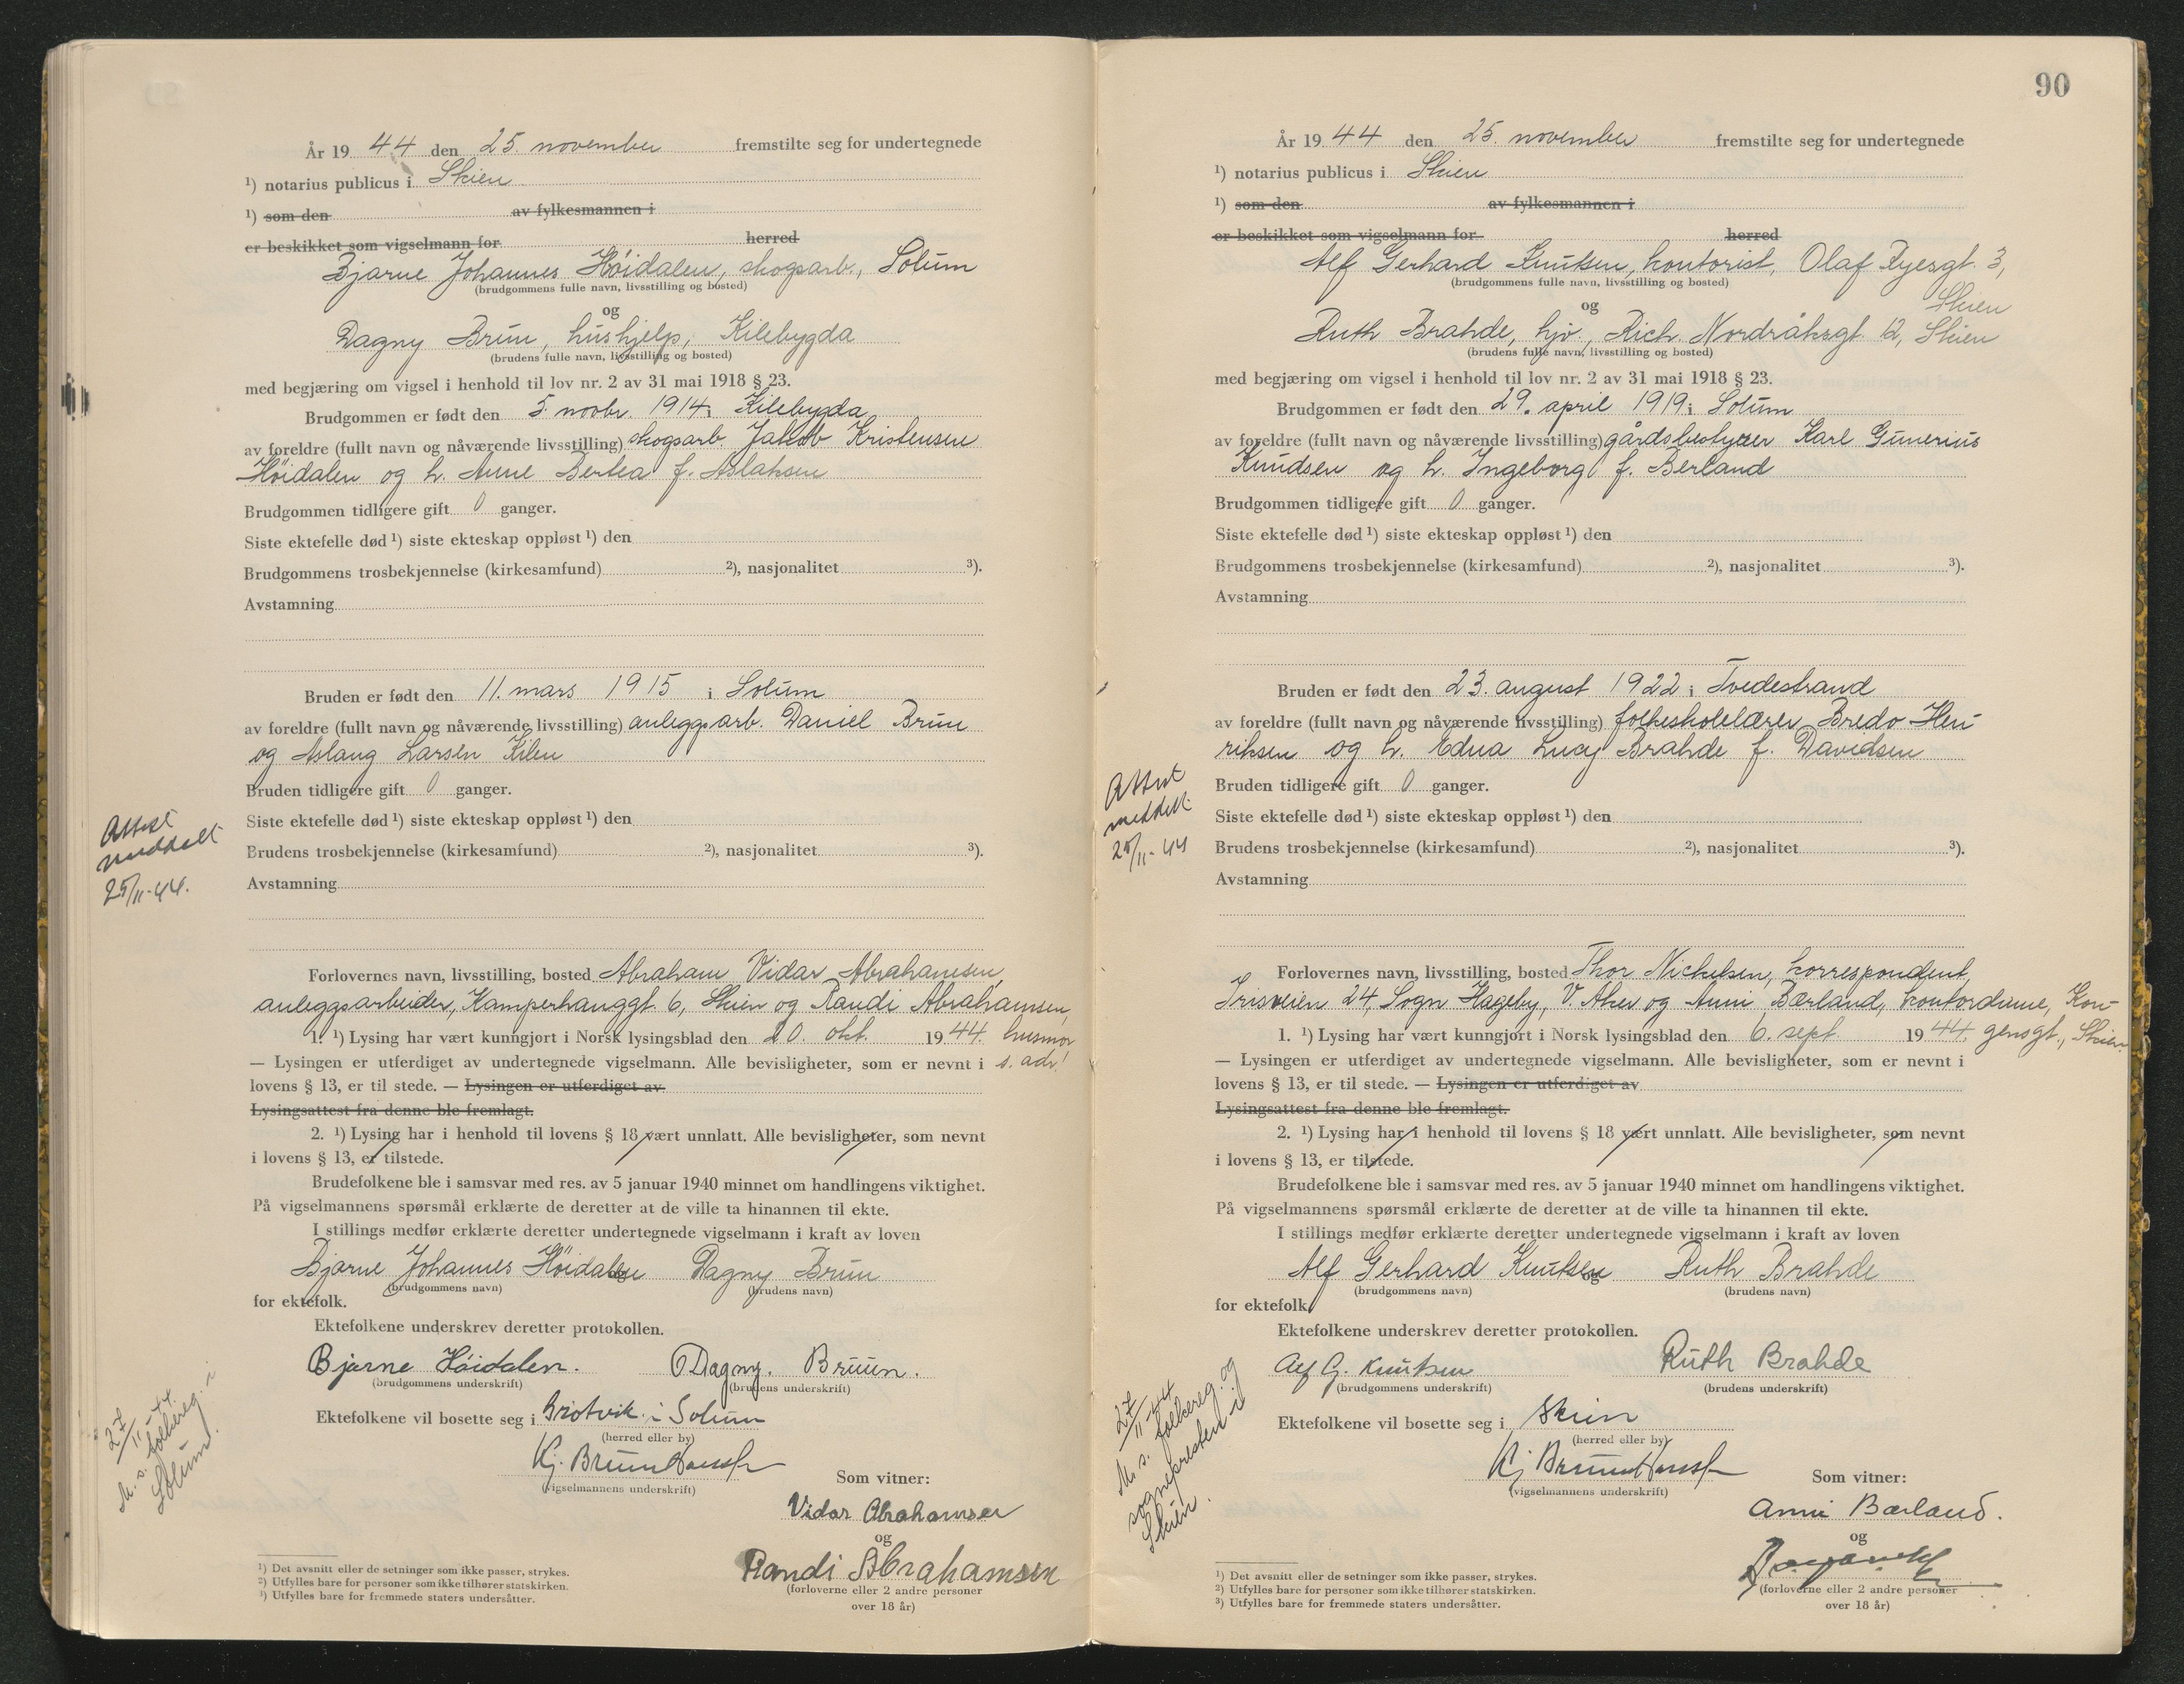 År 19 44 den 25. november fremstilte seg for undertegnede
¹) notarius publicus i Skien
¹) som den av fylkesmannen i
er beskikket som vigselmann for herred
Bjarne Johannes Höidalen, skogsarb., Solum
(brudgommens fulle navn, livsstilling og bosted)
og
Dagny Brun, hushjelp, Kilebygda
(brudens fulle navn, livsstilling og bosted)
med begjæring om vigsel i henhold til lov nr. 2 av 31 mai 1918 § 23.
Brudgommen er født den 5. novbr. 1914 i Kilebygda
av foreldre (fullt navn og nåværende livsstilling) skogsarb. Jakob Kristensen
Höidalen og h. Anne Bertea f. Aslaksen
Brudgommen tidligere gift 0 ganger.
Siste ektefelle død ¹) siste ekteskap oppløst ¹) den
Brudgommens trosbekjennelse (kirkesamfund) ²), nasjonalitet ³).
Avstamning
Bruden er født den 11. mars 1915 i Solum
av foreldre (fullt navn og nåværende livsstilling) anleggsarb. Daniel Brun
og Aslaug Larsen Kilen
Bruden tidligere gift 0 ganger.
Siste ektefelle død ¹) siste ekteskap oppløst ¹) den
Brudens trosbekjennelse (kirkesamfund) ²), nasjonalitet ³).
Avstamning
Attest
meddelt
25/11-44.
Forlovernes navn, livsstilling, bosted Abraham Vidar Abrahamsen,
anleggsarbeider, Kamperhauggt 6, Skien og Randi Abrahamsen,
1. ¹) Lysing har vært kunngjort i Norsk lysingsblad den 20. okt. 19 44. husmor
— Lysingen er utferdiget av undertegnede vigselmann. Alle bevisligheter, som er nevnt i s. adr!
lovens § 13, er til stede. — Lysingen er utferdiget av
Lysingsattest fra denne ble fremlagt.
2. ¹) Lysing har i henhold til lovens § 18 vært unnlatt. Alle bevisligheter, som nevnt
i lovens § 13, er tilstede.
Brudefolkene ble i samsvar med res. av 5 januar 1940 minnet om handlingens viktighet.
På vigselmannens spørsmål erklærte de deretter at de ville ta hinannen til ekte.
I stillings medfør erklærte deretter undertegnede vigselmann i kraft av loven
Bjarne Johannes Höidalen og Dagny Brun
(brudgommens navn) (brudens navn)
for ektefolk.
Ektefolkene underskrev deretter protokollen.
Bjarne Höidalen. Dagny. Bruun.
(brudgommens underskrift) (brudens underskrift)
Ektefolkene vil bosette seg i Grotvik i Solum
(herred eller by)
Kj. Bruun Hanssen
(vigselmannens underskrift)
Som vitner:
Vidar Abrahamsen
og
Randi Abrahamsen
(forloverne eller 2 andre personer
over 18 år)
27/11-44.
M. s. folkereg. i
Solum.
¹) Det avsnitt eller de setninger som ikke passer, strykes.
²) Utfylles bare for personer som ikke tilhører statskirken.
³) Utfylles bare for fremmede staters undersåtter.
90
År 19 44 den 25. november fremstilte seg for undertegnede
¹) notarius publicus i Skien
¹) som den av fylkesmannen i
er beskikket som vigselmann for herred
Alf Gerhard Knutsen, kontorist, Olaf Ryesgt. 3,
(brudgommens fulle navn, livsstilling og bosted) Skien
og
Ruth Brahde, hjv., Rich. Nordråksgt. 12, Skien
(brudens fulle navn, livsstilling og bosted)
med begjæring om vigsel i henhold til lov nr. 2 av 31 mai 1918 § 23.
Brudgommen er født den 29. april 1919 i Solum
av foreldre (fullt navn og nåværende livsstilling) gårdsbestyrer Karl Gunerius
Knudsen og h. Ingeborg f. Berland
Brudgommen tidligere gift 0 ganger.
Siste ektefelle død ¹) siste ekteskap oppløst ¹) den
Brudgommens trosbekjennelse (kirkesamfund) ²), nasjonalitet ³).
Avstamning
Bruden er født den 23. august 1922 i Tvedestrand
av foreldre (fullt navn og nåværende livsstilling) folkeskolelærer Bredo Hen-
riksen og h. Edna Lucy Brahde f. Davidsen
Bruden tidligere gift 0 ganger.
Siste ektefelle død ¹) siste ekteskap oppløst ¹) den
Brudens trosbekjennelse (kirkesamfund) ²), nasjonalitet ³).
Avstamning
Attest
meddelt
25/11-44
Forlovernes navn, livsstilling, bosted Thor Nickelsen, korrespondent,
Irisveien 24, Sogn Hageby, V. Aker og Anni Bærland, kontordame, Kon-
1. ¹) Lysing har vært kunngjort i Norsk lysingsblad den 6. sept. 19 44. gensgt., Skien
— Lysingen er utferdiget av undertegnede vigselmann. Alle bevisligheter, som er nevnt i
lovens § 13, er til stede. — Lysingen er utferdiget av
Lysingsattest fra denne ble fremlagt.
2. ¹) Lysing har i henhold til lovens § 18 vært unnlatt. Alle bevisligheter, som nevnt
i lovens § 13, er tilstede.
Brudefolkene ble i samsvar med res. av 5 januar 1940 minnet om handlingens viktighet.
På vigselmannens spørsmål erklærte de deretter at de ville ta hinannen til ekte.
I stillings medfør erklærte deretter undertegnede vigselmann i kraft av loven
Alf Gerhard Knutsen og Ruth Brahde
(brudgommens navn) (brudens navn)
for ektefolk.
Ektefolkene underskrev deretter protokollen.
Alf G. Knutsen Ruth Brahde
(brudgommens underskrift) (brudens underskrift)
Ektefolkene vil bosette seg i Skien
(herred eller by)
Kj Bruun Hanssen
(vigselmannens underskrift)
Som vitner:
Anni Bærland.
og
(forloverne eller 2 andre personer
over 18 år)
27/11-44
M. s. folkereg. og
sognepresten i
Skien.
¹) Det avsnitt eller de setninger som ikke passer, strykes.
²) Utfylles bare for personer som ikke tilhører statskirken.
³) Utfylles bare for fremmede staters undersåtter.